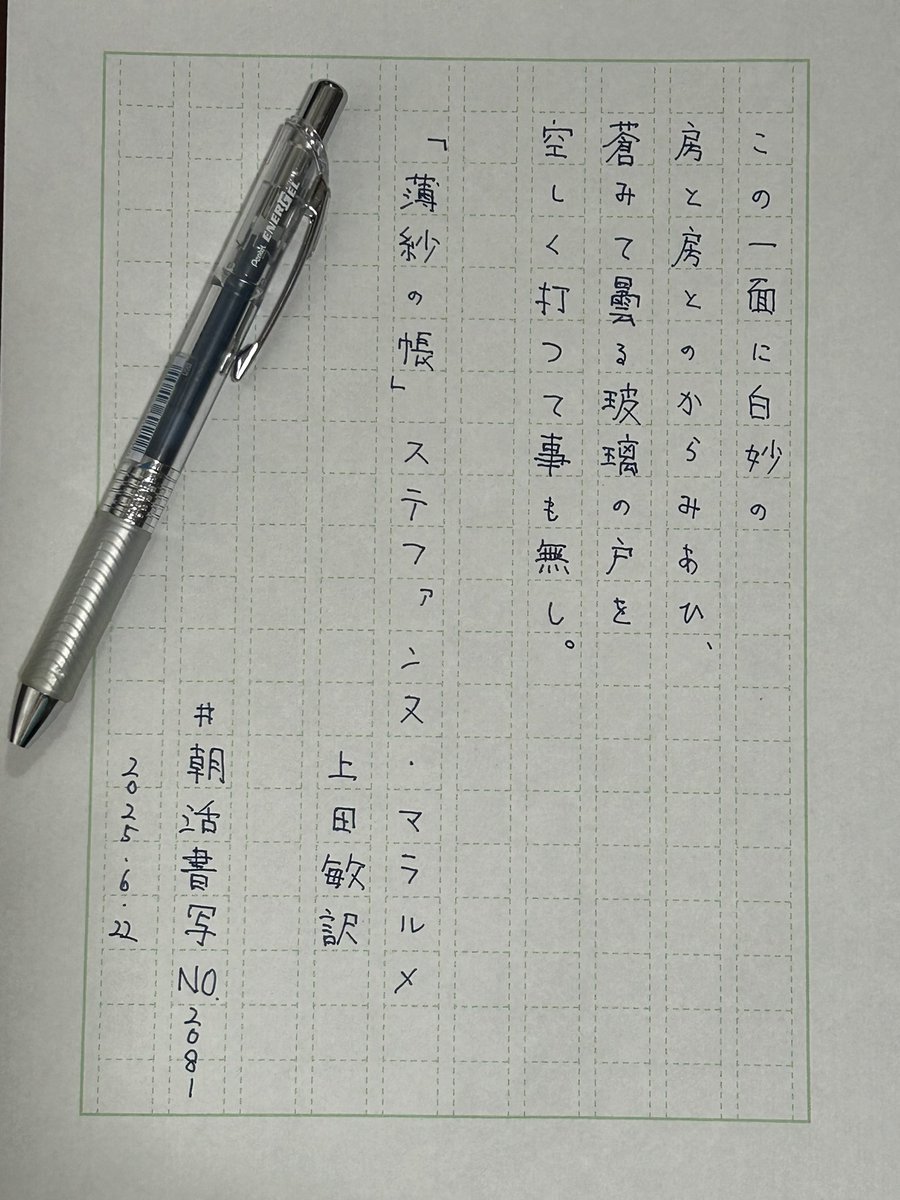 この一面に白妙の
房と房とのからみあひ、
蒼みて曇る玻璃の戸を
空しく打つて事も無し。
「薄紗の帳」 ステファンヌ・マラルメ
上田敏訳
#朝活書写NO.2081
2025.6.22
Pentel ENERGEL